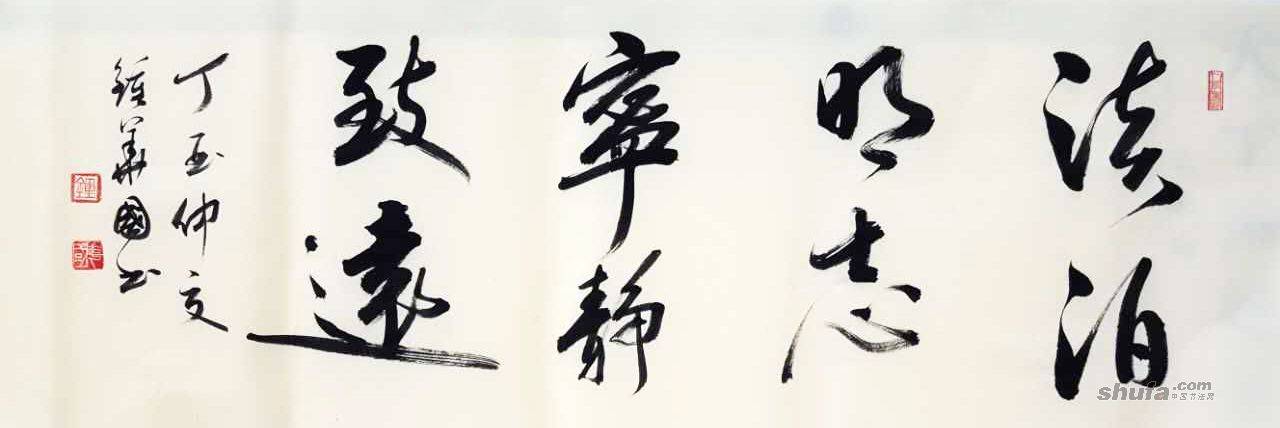 淡泊
明志
寧靜
致遠
丁酉仲夏
鍾華國书
鍾
shufa.com
中国书法网